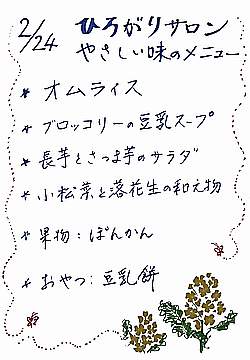 2/24 ひろがりサロン
やさしい味のメニュー
* オムライス
* ブロッコリーの豆乳スープ
* 長芋とさつま芋のサラダ
* 小松菜と落花生の和え物
* 果物：ぽんかん
* おやつ：豆乳餅